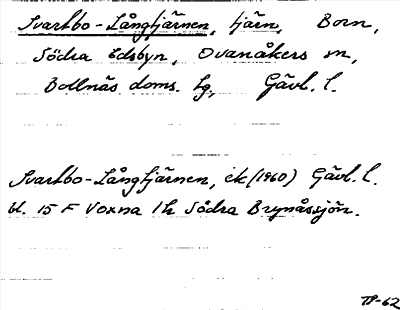 Svartbo-Långtjärnen, tjärn, Born,
Södra Edsbyn, Ovanåkers sn,
Bollnäs doms. lg, Gävl. l.
Svartbo-Långtjärnen, ek (1960) Gävl. l.
bl. 15 F Voxna 1h Södra Brynåssjön.
TP-62